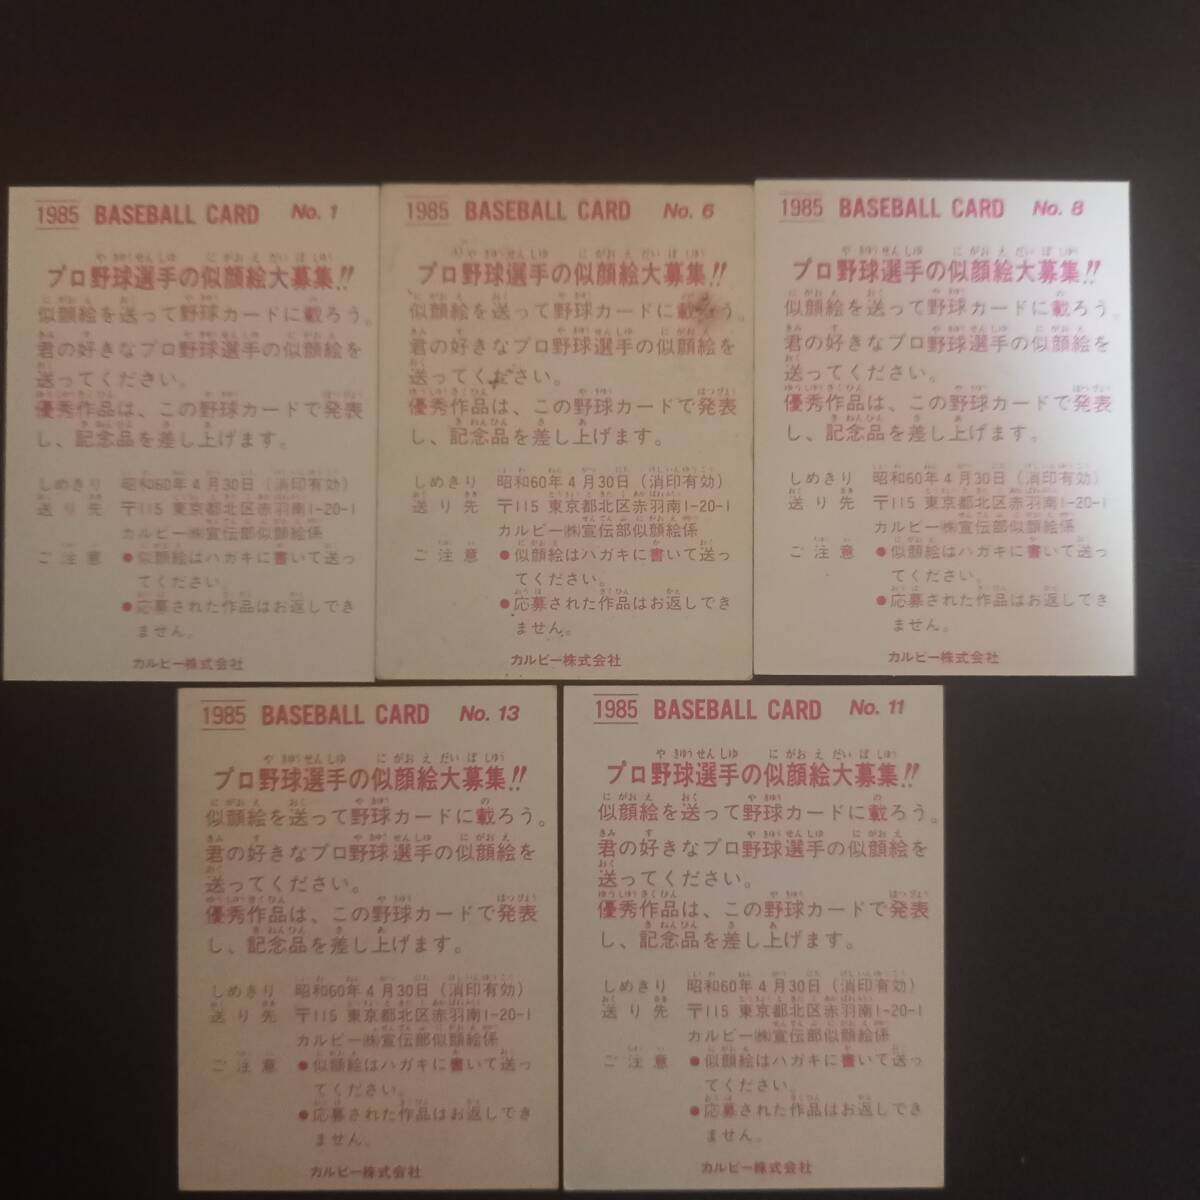 1985 BASEBALL CARD No. 1
プロ野球選手の似顔絵大募集!!
似顔絵を送って野球カードに載ろう。
君の好きなプロ野球選手の似顔絵を
送ってください。
優秀作品は、この野球カードで発表
し、記念品を差し上げます。
しめきり 昭和60年4月30日(消印有効)
送り先 〒115 東京都北区赤羽南1-20-1
カルビー㈱宣伝部似顔絵係
ご注意 ●似顔絵はハガキに書いて送っ
てください。
●応募された作品はお返しでき
ません。
カルビー株式会社
1985 BASEBALL CARD No. 6
プロ野球選手の似顔絵大募集!!
似顔絵を送って野球カードに載ろう。
君の好きなプロ野球選手の似顔絵を
送ってください。
優秀作品は、この野球カードで発表
し、記念品を差し上げます。
しめきり 昭和60年4月30日(消印有効)
送り先 〒115 東京都北区赤羽南1-20-1
カルビー㈱宣伝部似顔絵係
ご注意 ●似顔絵はハガキに書いて送っ
てください。
●応募された作品はお返しでき
ません。
カルビー株式会社
1985 BASEBALL CARD No. 8
プロ野球選手の似顔絵大募集!!
似顔絵を送って野球カードに載ろう。
君の好きなプロ野球選手の似顔絵を
送ってください。
優秀作品は、この野球カードで発表
し、記念品を差し上げます。
しめきり 昭和60年4月30日(消印有効)
送り先 〒115 東京都北区赤羽南1-20-1
カルビー㈱宣伝部似顔絵係
ご注意 ●似顔絵はハガキに書いて送っ
てください。
●応募された作品はお返しでき
ません。
カルビー株式会社
1985 BASEBALL CARD No. 13
プロ野球選手の似顔絵大募集!!
似顔絵を送って野球カードに載ろう。
君の好きなプロ野球選手の似顔絵を
送ってください。
優秀作品は、この野球カードで発表
し、記念品を差し上げます。
しめきり 昭和60年4月30日(消印有効)
送り先 〒115 東京都北区赤羽南1-20-1
カルビー㈱宣伝部似顔絵係
ご注意 ●似顔絵はハガキに書いて送っ
てください。
●応募された作品はお返しでき
ません。
カルビー株式会社
1985 BASEBALL CARD No. 11
プロ野球選手の似顔絵大募集!!
似顔絵を送って野球カードに載ろう。
君の好きなプロ野球選手の似顔絵を
送ってください。
優秀作品は、この野球カードで発表
し、記念品を差し上げます。
しめきり 昭和60年4月30日(消印有効)
送り先 〒115 東京都北区赤羽南1-20-1
カルビー㈱宣伝部似顔絵係
ご注意 ●似顔絵はハガキに書いて送っ
てください。
●応募された作品はお返しでき
ません。
カルビー株式会社